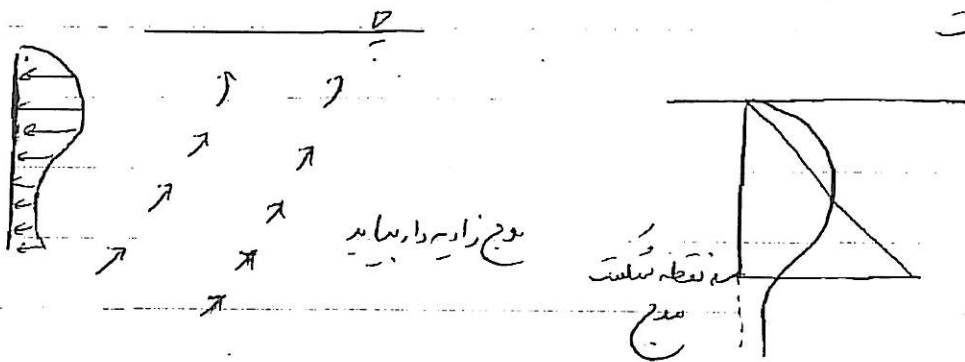 موج زاویه دار بیاید
نقطه شکست
موج